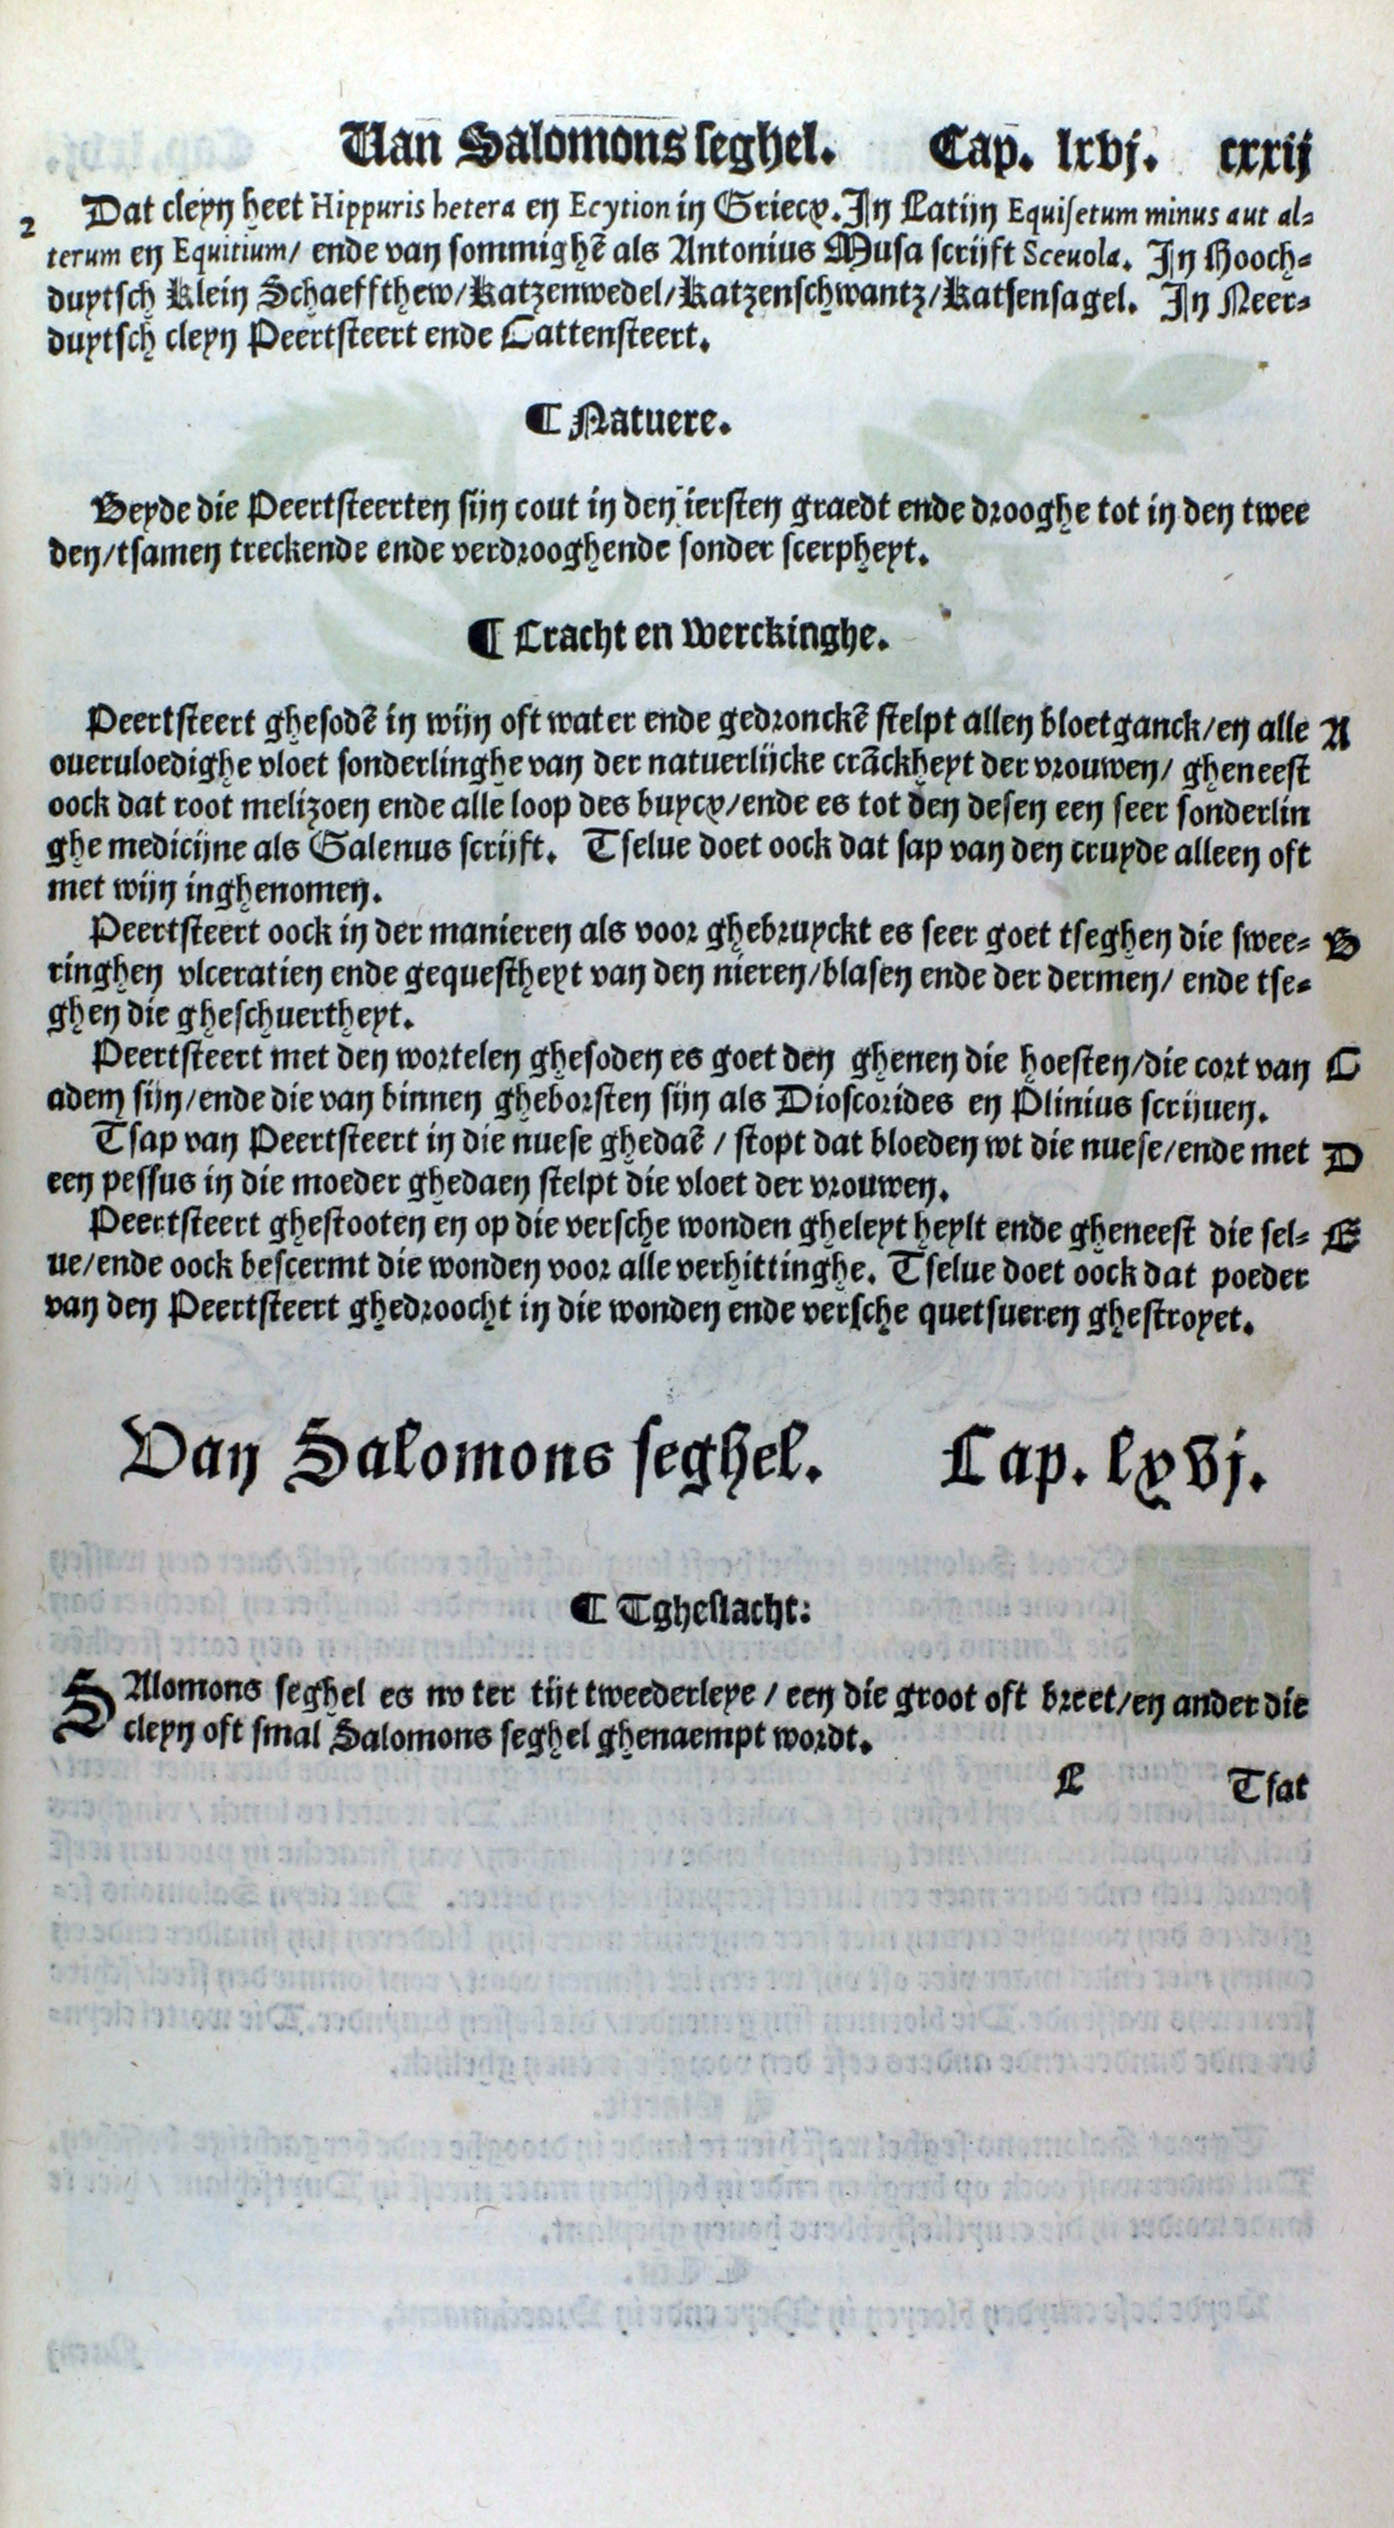 Van Salomons seghel. Cap. lxvj. cxxij
2 Dat cleyn heet Hippuris hetera en̄ Ecytion in Griecx. In Latijn Equisetum minus aut al-
terum en̄ Equitium/ ende van sommighē als Antonius Musa scrijft Sceuola. In Hooch-
duytsch Klein Schaeffthew/Katzenwedel/Katzenschwantz/Katsensagel. In Neer-
duytsch cleyn Peertsteert ende Cattensteert.
¶ Natuere.
Beyde die Peertsteerten sijn cout in den iersten graedt ende drooghe tot in den twee
den/tsamen treckende ende verdrooghende sonder scerpheyt.
¶ Cracht en werckinghe.
Peertsteert ghesodē in wijn oft water ende gedronckē stelpt allen bloetganck/en̄ alle A
oueruloedighe vloet sonderlinghe van der natuerlijcke crāckheyt der vrouwen/ gheneest
oock dat root melizoen ende alle loop des buycx/ende es tot den desen een seer sonderlin
ghe medicijne als Galenus scrijft. Tselue doet oock dat sap van den cruyde alleen oft
met wijn inghenomen.
Peertsteert oock in der manieren als voor ghebruyckt es seer goet tseghen die swee- B
ringhen vlceratien ende gequestheyt van den nieren/blasen ende der dermen/ ende tse-
ghen die gheschuertheyt.
Peertsteert met den wortelen ghesoden es goet den ghenen die hoesten/die cort van C
adem sijn/ende die van binnen gheborsten sijn als Dioscorides en̄ Plinius scrijuen.
Tsap van Peertsteert in die nuese ghedaē / stopt dat bloeden wt die nuese/ende met D
een pessus in die moeder ghedaen stelpt die vloet der vrouwen.
Peertsteert ghestooten en̄ op die versche wonden gheleyt heylt ende gheneest die sel- E
ue/ende oock bescermt die wonden voor alle verhittinghe. Tselue doet oock dat poeder
van den Peertsteert ghedroocht in die wonden ende versche quetsueren ghestroyet.
Van Salomons seghel. Cap. lxvj.
¶ Tgheslacht:
SAlomons seghel es nv ter tijt tweederleye / een die groot oft breet/en̄ ander die
cleyn oft smal Salomons seghel ghenaempt wordt.
Tsat